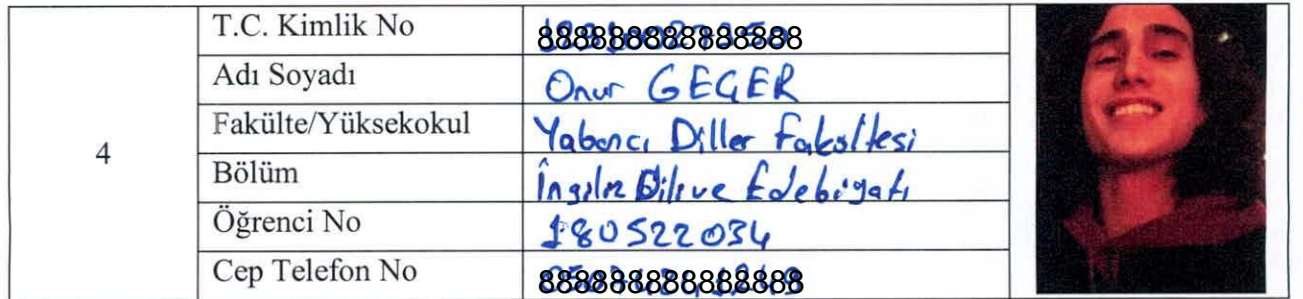 4
T.C. Kimlik No
Adı Soyadı Onur GEGER
Fakülte/Yüksekokul Yabancı Diller Fakültesi
Bölüm İngiliz Dili ve Edebiyatı
Öğrenci No 180522034
Cep Telefon No